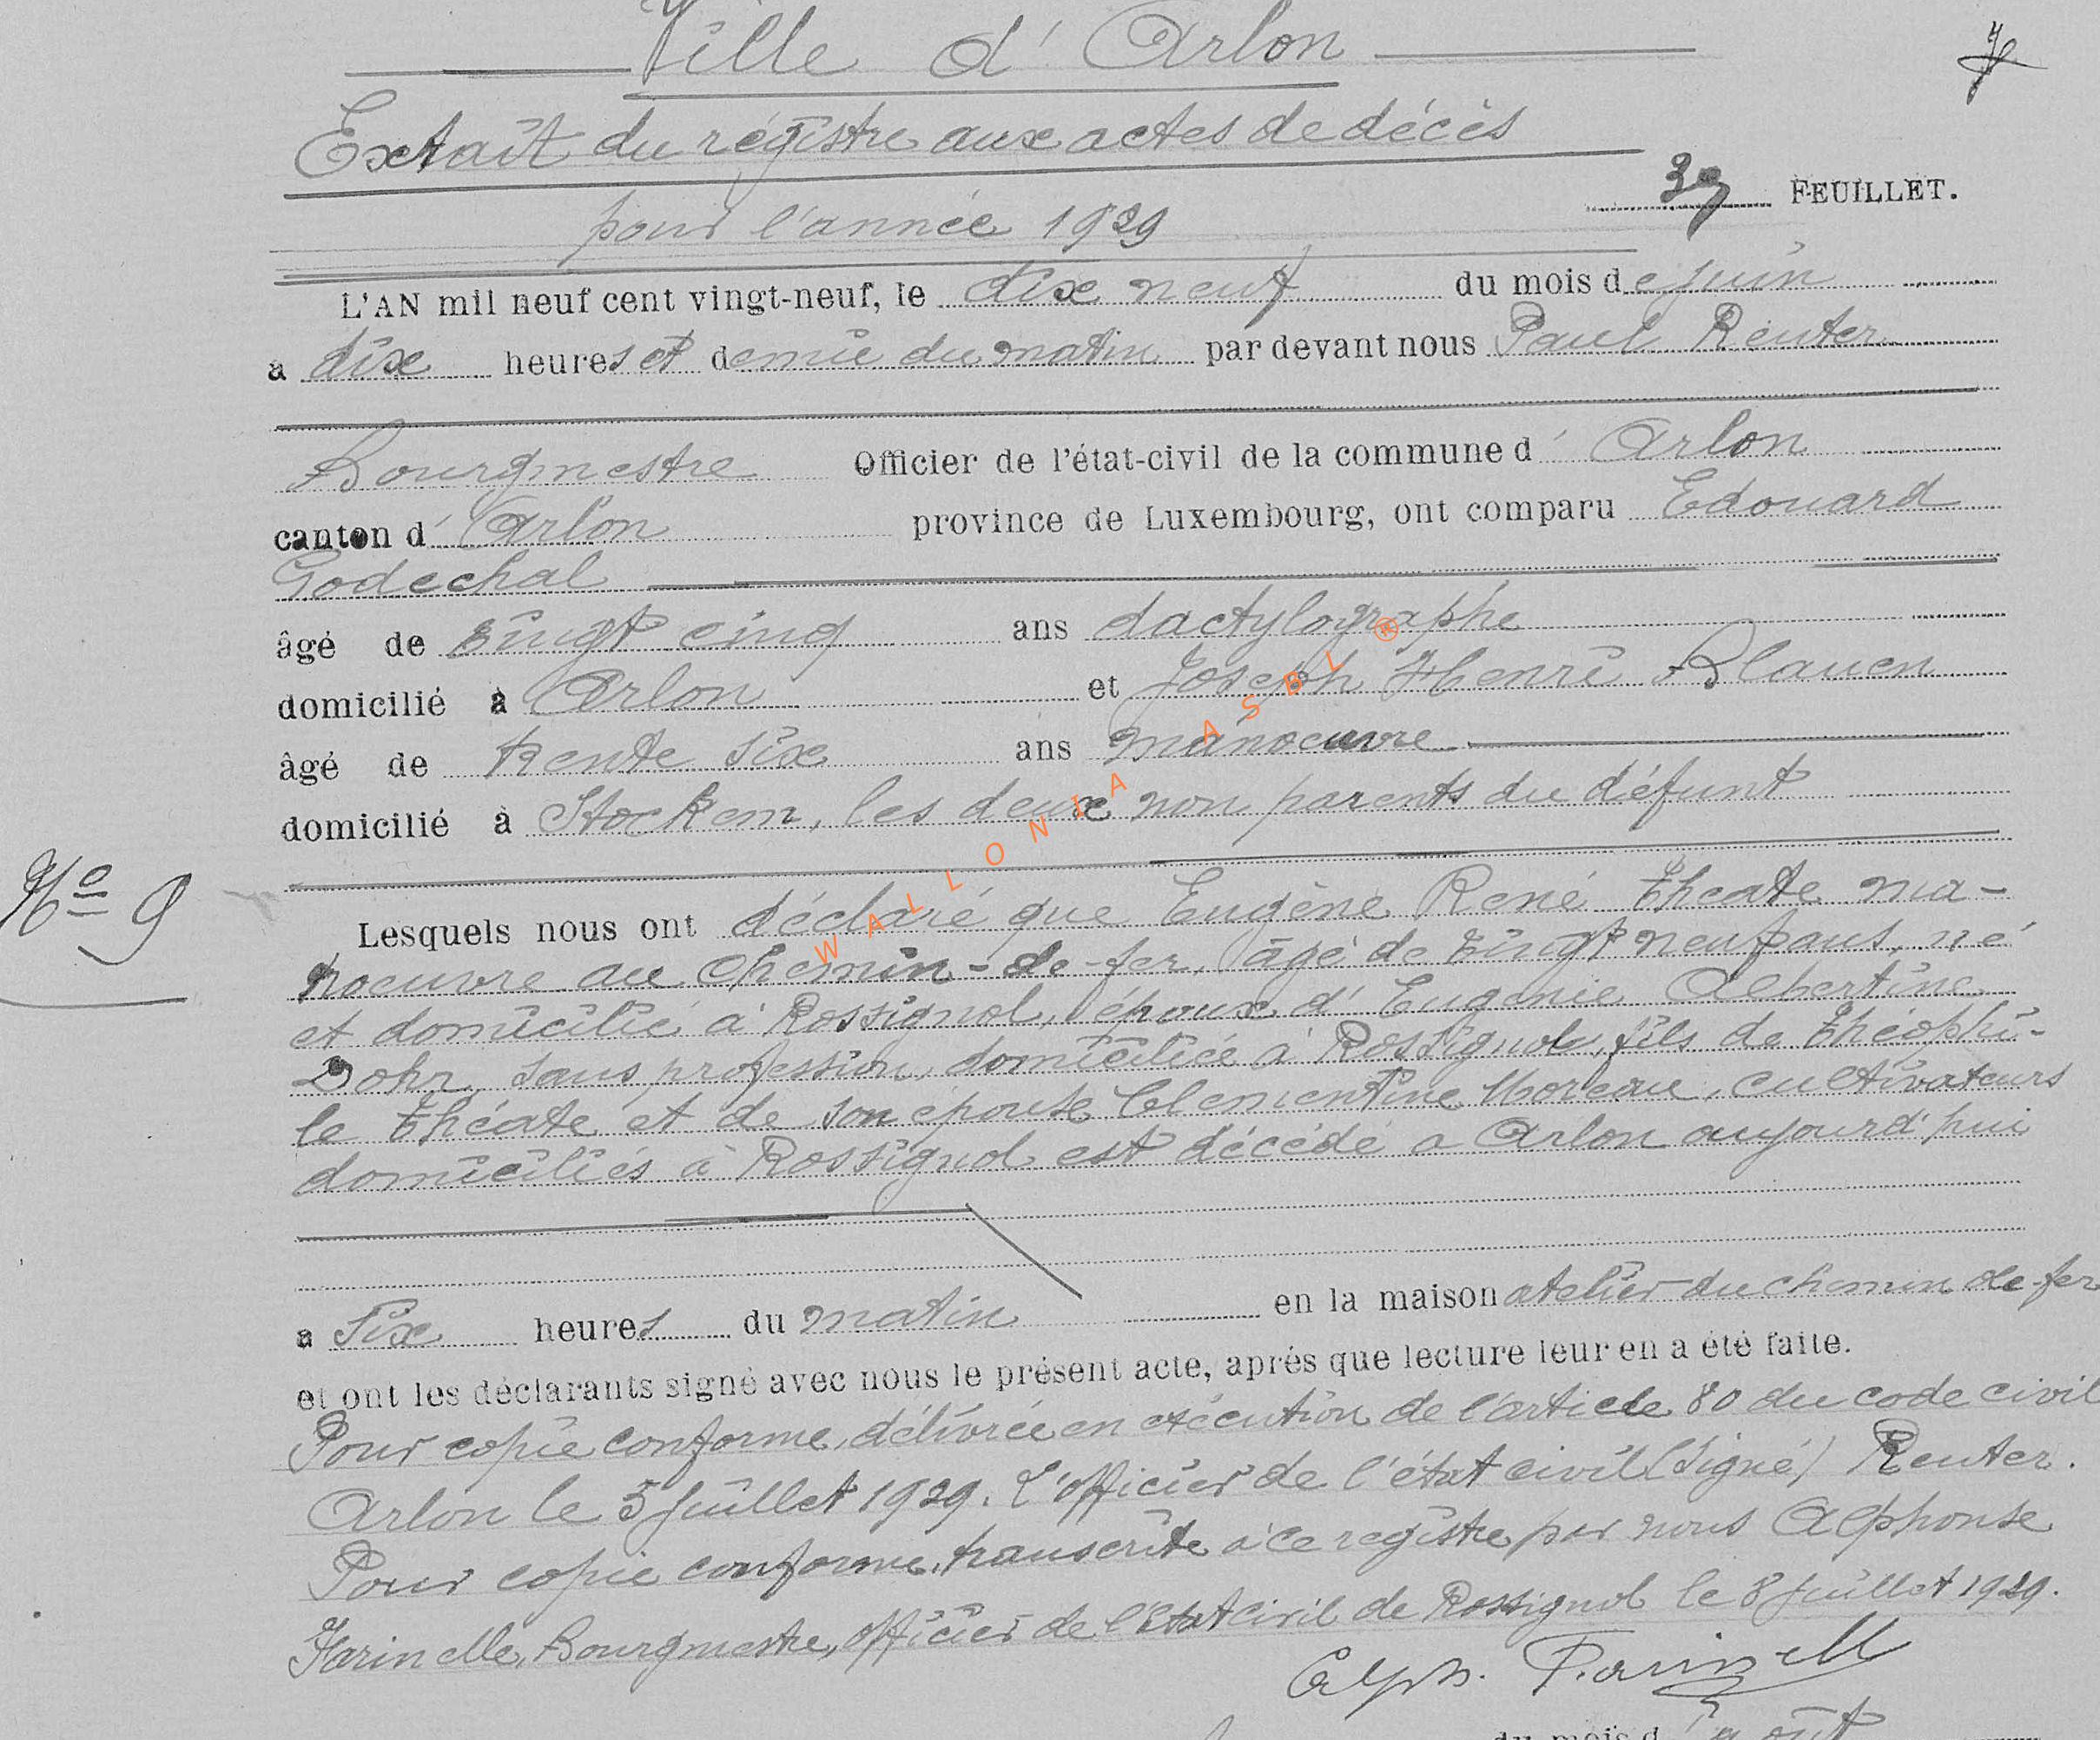 Ville d'Arlon
Extait du régistre aux actes de décès
39 FEUILLET.
pour l'année 1929
L'AN mil neuf cent vingt-neuf, le dix neuf du mois de juin
à dix heures et demie du matin par devant nous Paul Reuter
Bourgmestre Officier de l'état-civil de la commune d'Arlon
canton d'Arlon province de Luxembourg, ont comparu Edouard
Godechal
âgé de vingt cinq ans dactylographe
domicilié à Arlon et Joseph Henri Blauen
âgé de trente six ans manoeuvre
domicilié à Stockem, les deux non parents du défunt
N° 9
Lesquels nous ont déclaré que Eugène René Théate ma-
noeuvre au chemin-de-fer, âgé de vingt neuf ans, né
et domicilié à Rossignol, époux d'Eugénie Albertine
Dohr, sans profession, domiciliée à Rossignol, fils de Théophi-
le Théate et de son épouse Clémentine Moreau, cultivateurs
domiciliés à Rossignol est décédé a Arlon aujourd'hui
à six heures du matin en la maison atelier du chemin de fer
et ont les déclarants signé avec nous le présent acte, après que lecture leur en a été faite.
Pour copie conforme, délivrée en exécution de l'article 80 du code civil
Arlon le 5 juillet 1929. L'officier de l'état civil (signé) Reuter.
Pour copie conforme, transcrite à ce registre par nous Alphonse
Farinelle, Bourgmestre, officier de l'Etat civil de Rossignol le 8 juillet 1929.
Alph. Farinelle
du mois d'août
WALLONIA ASBL ®